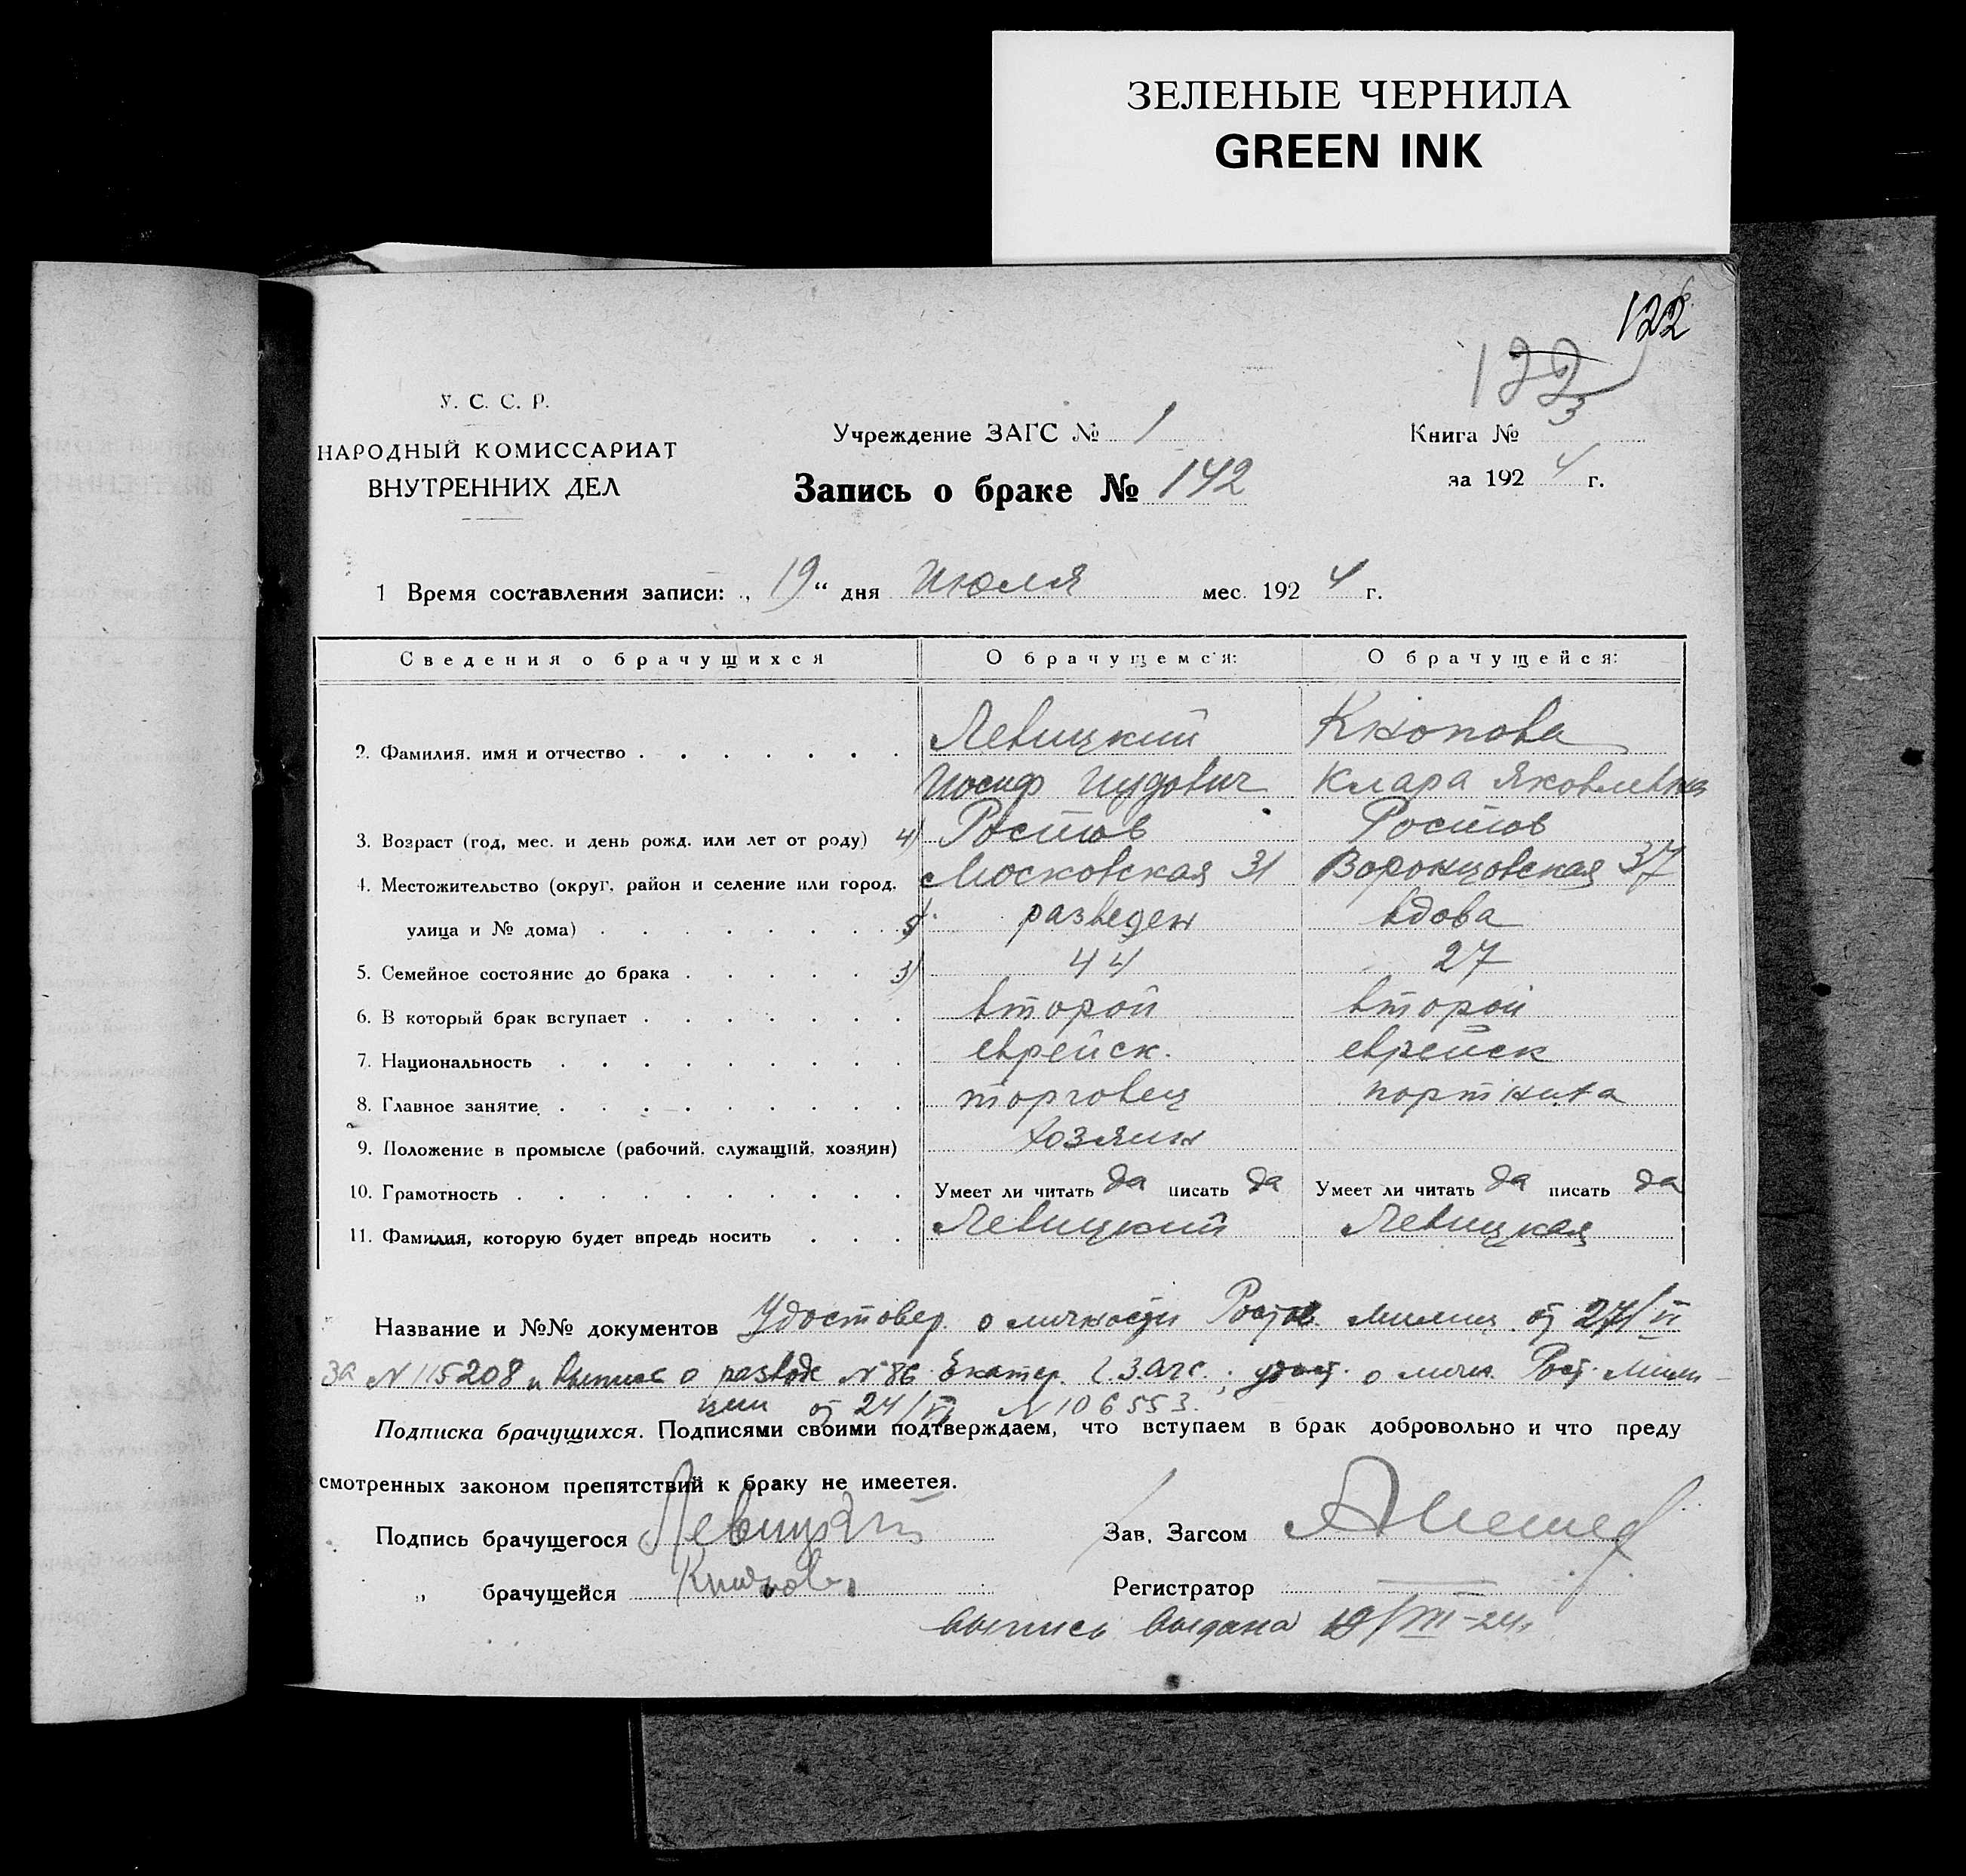 ЗЕЛЕНЫЕ ЧЕРНИЛА
GREEN INK
122
122
У. С. С. Р.
НАРОДНЫЙ КОМИССАРИАТ
ВНУТРЕННИХ ДЕЛ
Учреждение ЗАГС № 1
Книга № 3
Запись о браке № 142
за 1924 г.
1 Время составления записи: „19“ дня Июля мес. 1924 г.
Сведения о брачущихся О брачущемся: О брачущейся:
2. Фамилия, имя и отчество Левицкий Кнопова
Иосиф Иудович Клара Яковлевна
3. Возраст (год, мес. и день рожд. или лет от роду) 4) Ростов Ростов
4. Местожительство (округ, район и селение или город, Московская 31 Воронцовская 37
улица и № дома) 5) разведен вдова
5. Семейное состояние до брака 3) 44 27
6. В который брак вступает второй второй
7. Национальность еврейск. еврейск
8. Главное занятие торговец портниха
9. Положение в промысле (рабочий, служащий, хозяин) хозяин
10. Грамотность Умеет ли читать да писать да Умеет ли читать да писать да
11. Фамилия, которую будет впредь носить Левицкий Левицкая
Название и №№ документов Удостовер. о личности Ростов. Милиц. от 27/VI
за N 115208 и выпись о разводе N 86 Екатер. Загс.; удост. о личн. Рост. Мили-
ции от 24/VI N 106553.
Подписка брачущихся. Подписями своими подтверждаем, что вступаем в брак добровольно и что преду
смотренных законом препятствий к браку не имеетея.
Подпись брачущегося Левицкий Зав. Загсом
„ брачущейся Кнопова Регистратор
выпись выдана 19/VII-24г.